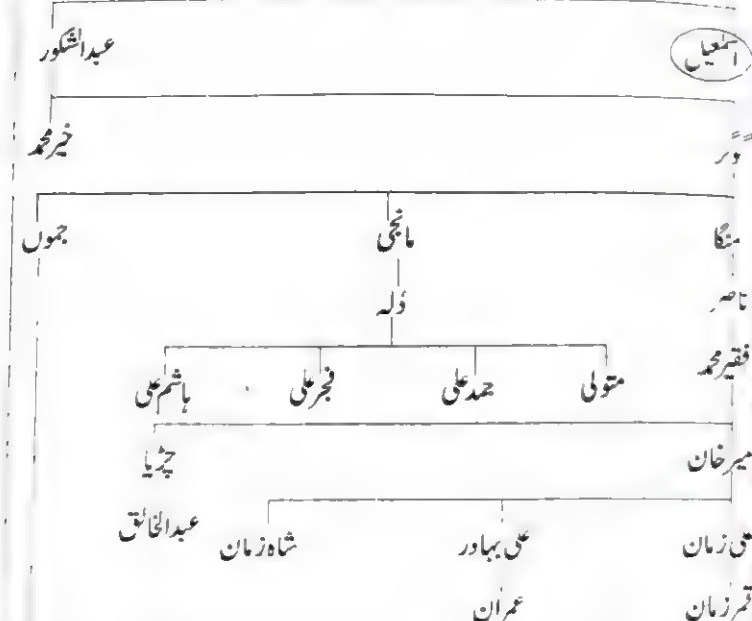 اسمٰعیل عبدالشکور
گوہر خیر محمد
منگا مانجی جموں
ناصر دُلہ
فقیر محمد
متولی حمد علی فجر علی ہاشم علی
میر خان چڑیا
علی زمان علی بہادر شاہ زمان عبدالخالق
قمر زمان عمران